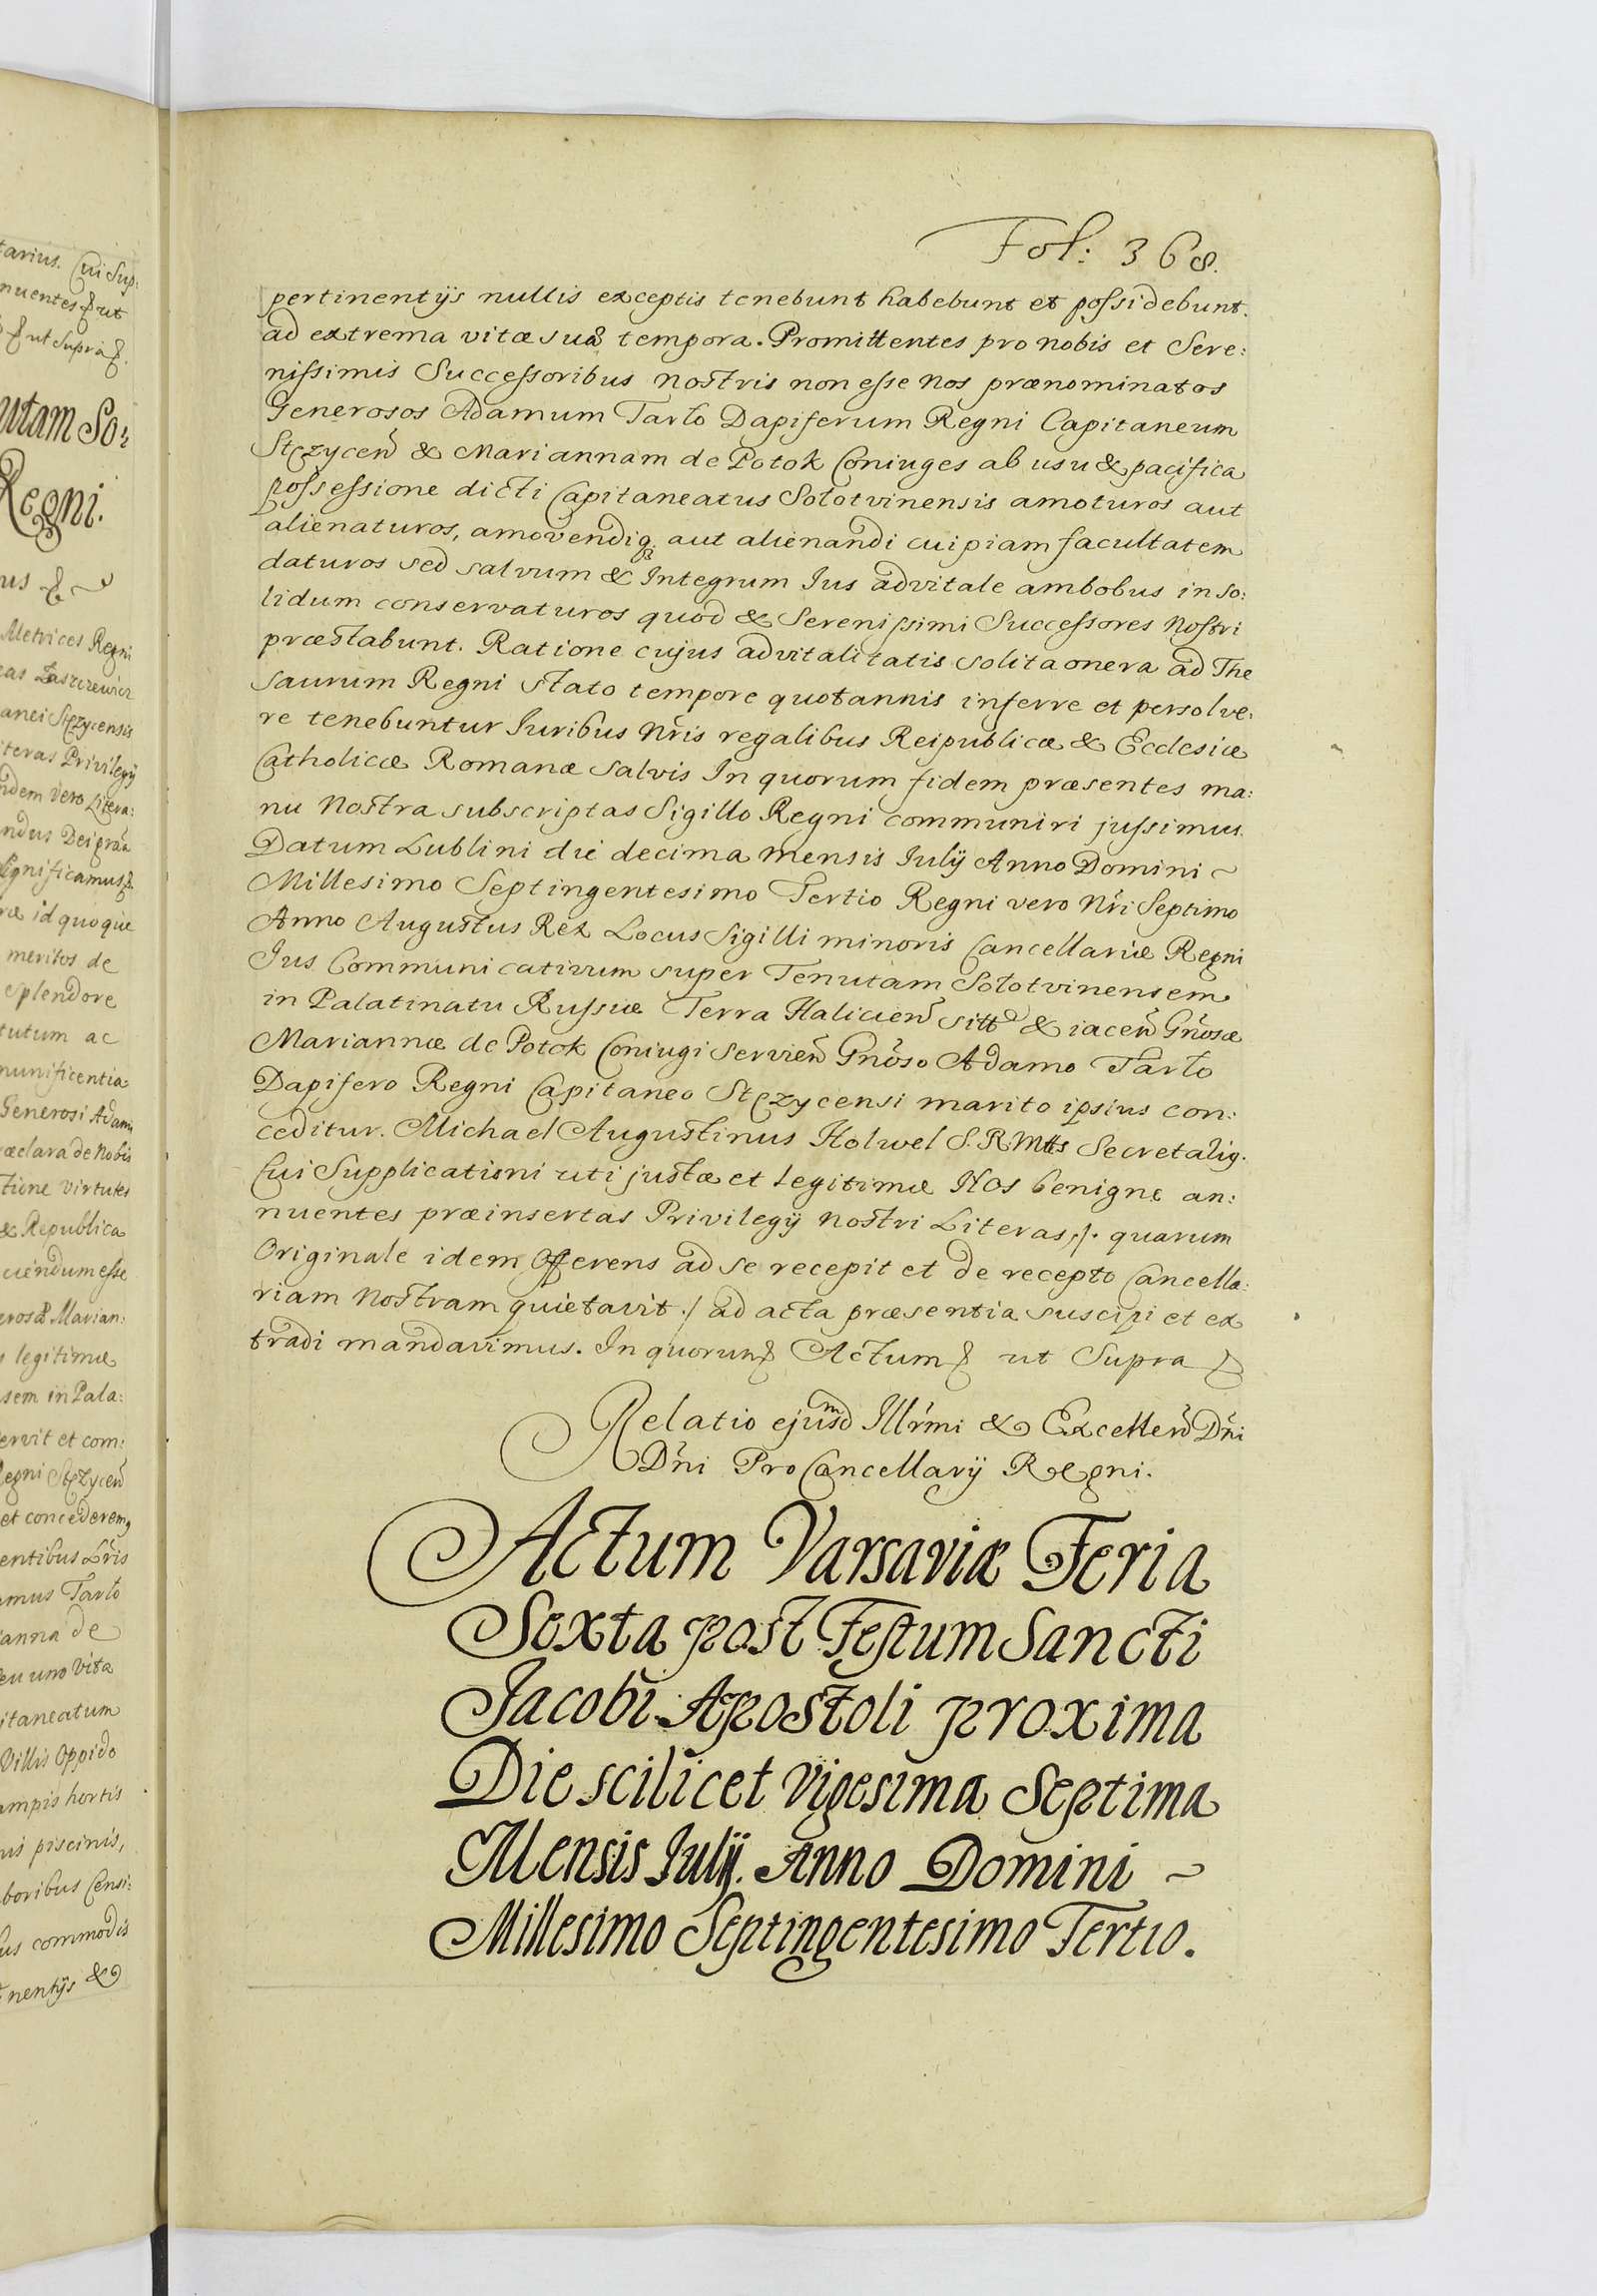 tarius. Cui Sup:
nuentes & ut
& ut Supra &.
utam So:
Regni.
us &
Metrices Regni
cas Łaszczewicz
anei Stęzycensis
iteras Privilegij
ndem vero Litera:
ndus Dei grãa
Significamus &.
ræ id quoque
meritos de
splendore
tutum ac
munificentia
Generosi Adam
ræclara de Nobis
tione virtutes
& Republica
ciendum esse
erosæ Marian:
legitimæ
sem in Pala:
ervit et com:
Regni Stęzyceñ
et concederemq
entibus Lr̃is
amus Tarło
anna de
seu uno vita
itaneatum
Villis Oppido
ampis hortis
piscinis,
boribus Censi:
us commodis
nentijs &
Fol: 368.
pertinentijs nullis exceptis tenebunt habebunt et possidebunt.
ad extrema vitæ suæ tempora. Promittentes pro nobis et Sere:
nissimis Successoribus nostris non esse Nos prænominatos
Generosos Adamum Tarło Dapiferum Regni Capitaneum
Stęzyceñ & Mariannam de Potok Coniuges ab usu & pacifica
possessione dicti Capitaneatus Sołotvinensis amoturos aut
alienaturos, amovendiq; aut alienandi cuipiam facultatem
daturos sed salvum & Integrum Ius advitale ambobus in so:
lidum conservaturos quod & Serenissimi Successores Nostri
præstabunt. Ratione cujus advitalitatis solita onera ad The
saurum Regni stato tempore quotannis inferre et persolve:
re tenebuntur Iuribus Nr̃is regalibus Reipublicæ & Ecclesiæ
Catholicæ Romanæ salvis In quorum fidem præsentes ma:
nu Nostra subscriptas Sigillo Regni communiri jussimus.
Datum Lublini die decima mensis Iulij Anno Domini ~
Millesimo Septingentesimo Tertio Regni vero Nr̃i Septimo
Anno Augustus Rex Locus Sigilli minoris Cancellariæ Regni
Ius Communicativum super Tenutam Sołotvinensem
in Palatinatu Russiæ Terra Halicieñ sitt & iaceñ Gñosæ
Mariannæ de Potok Coniugi servieñ Gñoso Adamo Tarło
Dapifero Regni Capitaneo Stęzycensi marito ipsius con:
ceditur. Michael Augustinus Holwel S. R. Mtts Secretalig.
Cui Supplicationi uti justæ et legitimæ Nos benigne an:
nuentes præinsertas Privilegij Nostri Literas /. quarum
Originale idem Offerens ad se recepit et de recepto Cancella:
riam Nostram quietavit ./ ad acta præsentia suscipi et ex
tradi mandavimus. In quorum & Actum & ut Supra &
Relatio ejusdm Illr̃mi & Excelleñ Dñi
Dñi Pro Cancellarij Regni.
Actum Varsaviæ Feria
Sexta post Festum Sancti
Jacobi Apostoli proxima
Die scilicet Vigesima Septima
Mensis Iulij. Anno Domini ~
Millesimo Septingentesimo Tertio.